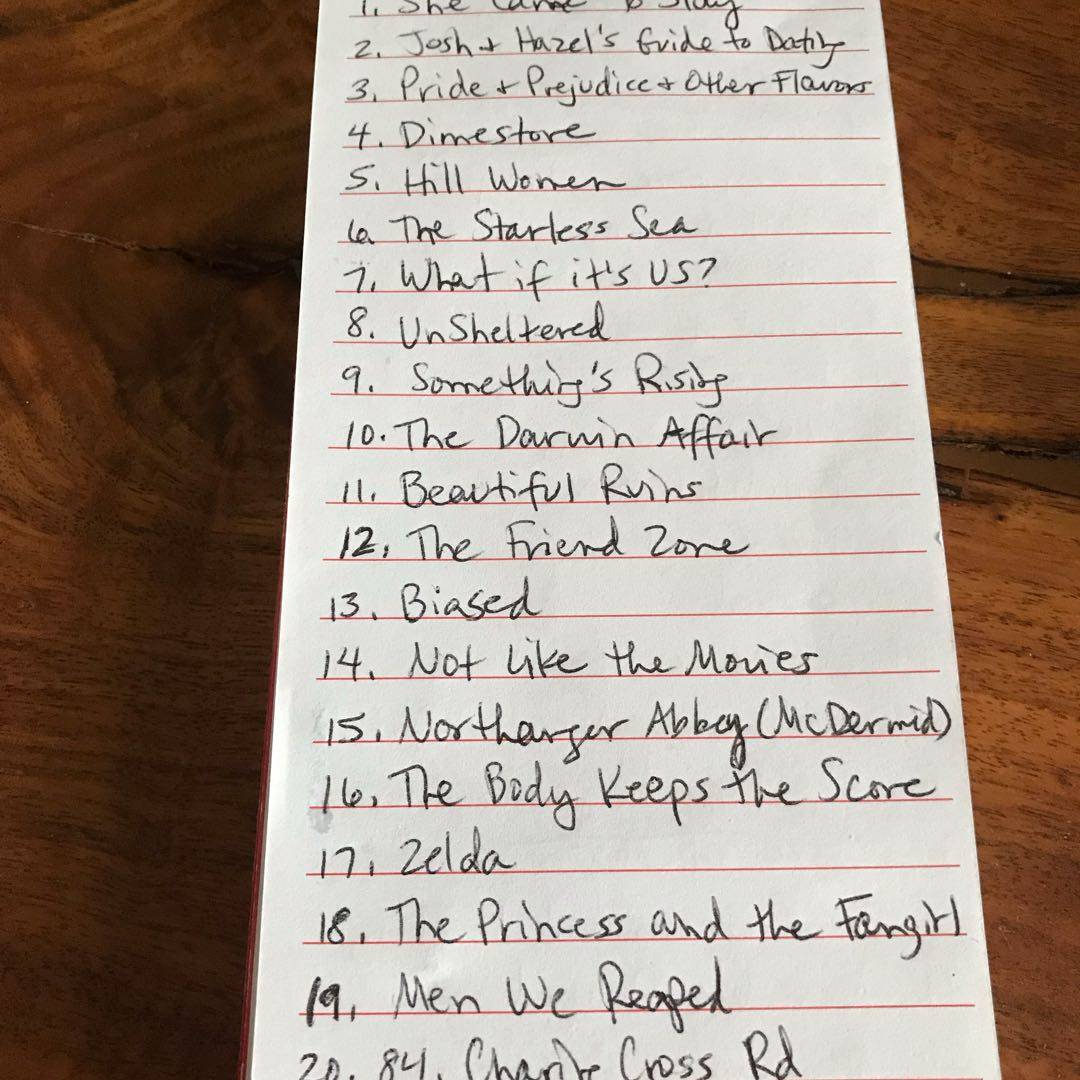 1. She Came to Stay
2. Josh + Hazel's Guide to Dating
3. Pride + Prejudice + Other Flavors
4. Dimestore
5. Hill Women
6. The Starless Sea
7. What if it's US?
8. UnSheltered
9. Something's Rising
10. The Darwin Affair
11. Beautiful Ruins
12. The Friend Zone
13. Biased
14. Not Like the Movies
15. Northanger Abbey (McDermid)
16. The Body Keeps the Score
17. Zelda
18. The Princess and the Fangirl
19. Men We Reaped
20. 84, Charing Cross Rd